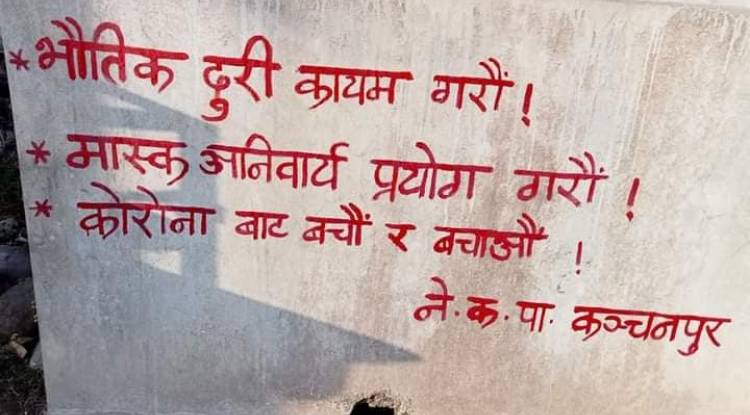 * भौतिक दुरी कायम गरौं !
* मास्क अनिवार्य प्रयोग गरौं !
* कोरोना बाट बचौं र बचाऔं !
ने. क. पा. कञ्चनपुर